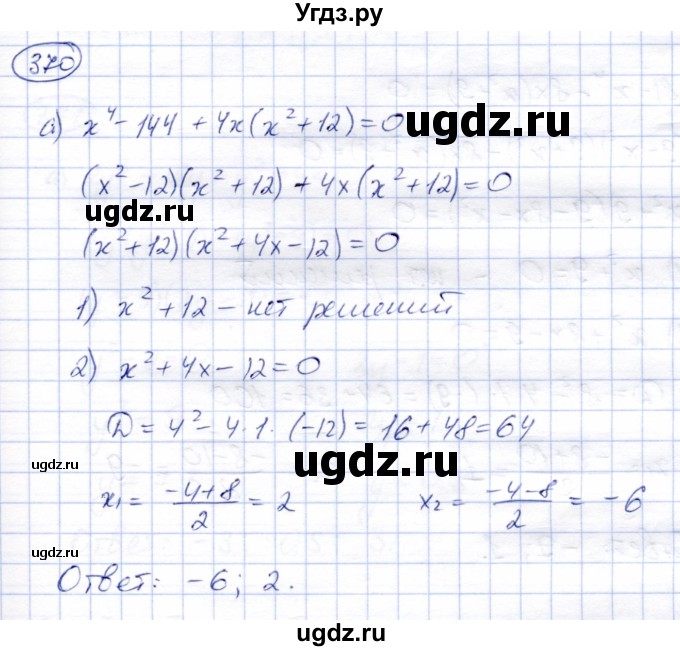 Угдз.ру
370
а) x⁴ - 144 + 4x(x² + 12) = 0
угдз.ру
(x² - 12)(x² + 12) + 4x(x² + 12) = 0
угдз.ру
(x² + 12)(x² + 4x - 12) = 0
1) x² + 12 - нет решений
2) x² + 4x - 12 = 0
D = 4² - 4·1·(-12) = 16 + 48 = 64
ugdz.ru
ugdz.ru
x₁ = (-4+8)/2 = 2 x₂ = (-4-8)/2 = -6
ugdz.ru
Ответ: -6; 2.
ugdz.ru